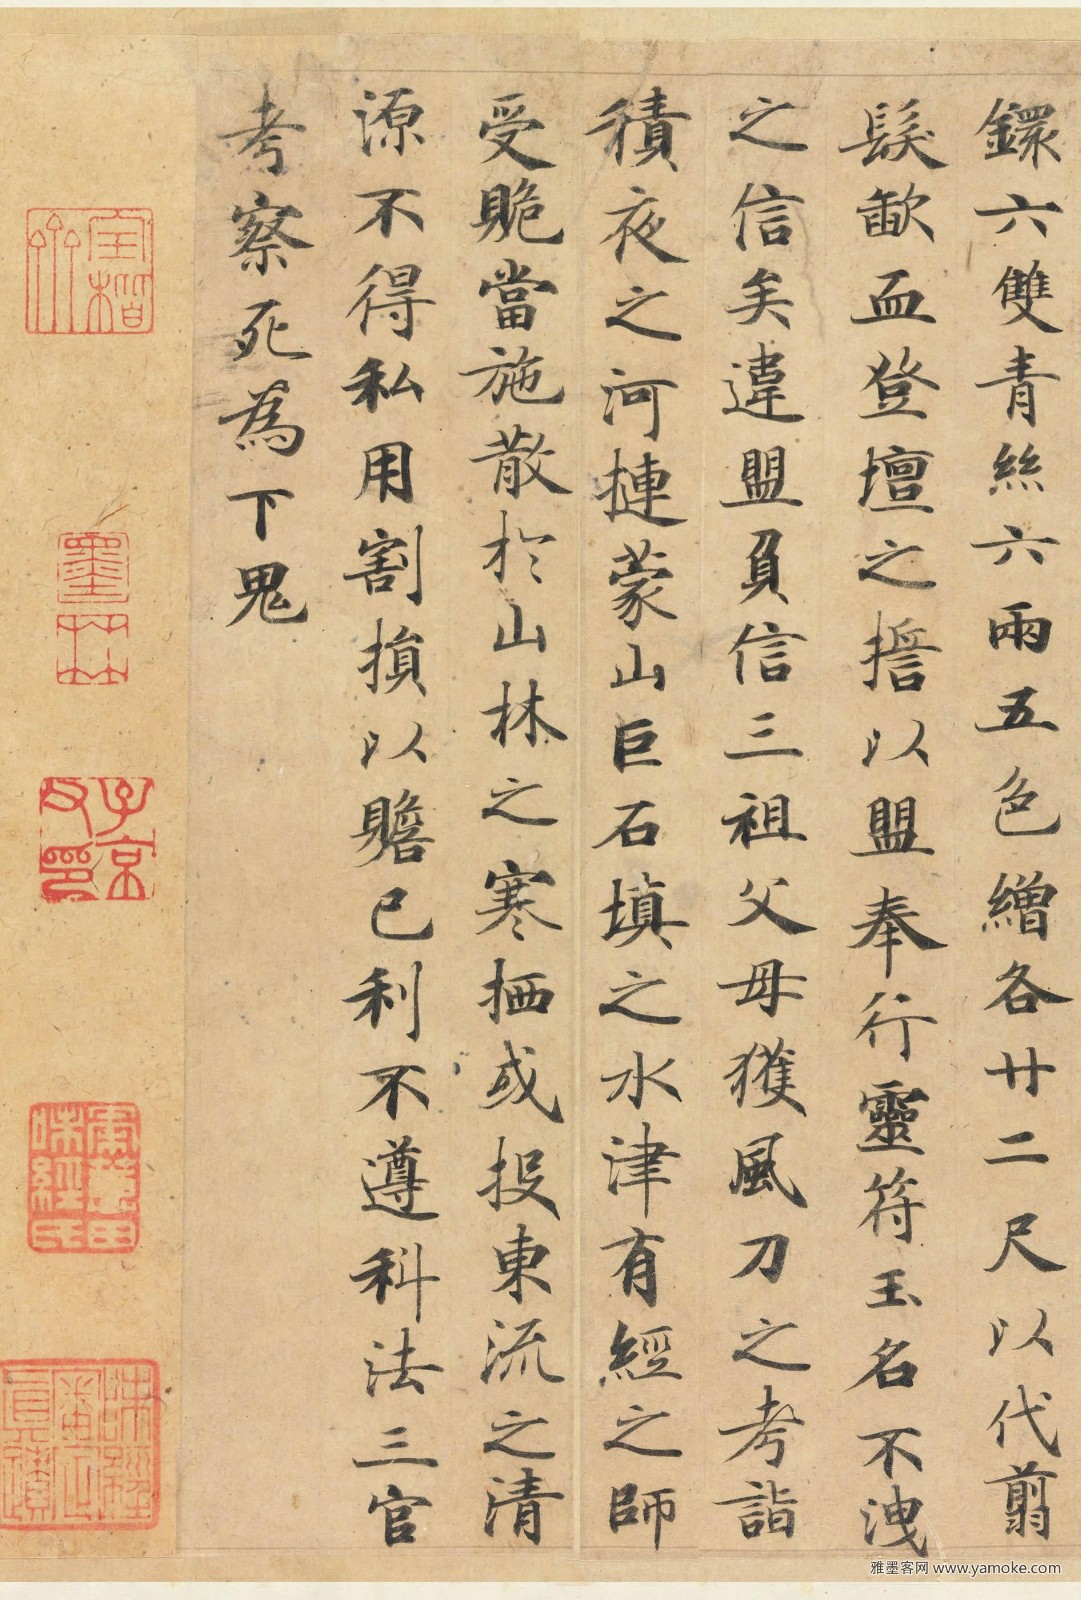 鐶六雙青絲六兩五色繒各廿二尺以代翦
髮歃血登壇之擔以盟奉行靈符玉名不洩
之信矣違盟負信三祖父母獲風刀之考詣
積夜之河摙蒙山巨石填之水津有經之師
受賍當施散於山林之寒栖或投東流之清
源不得私用割損以贍己利不遵科法三官
考察死為下鬼
宜稽
墨林
子京父印
雅墨客网 www.yamoke.com